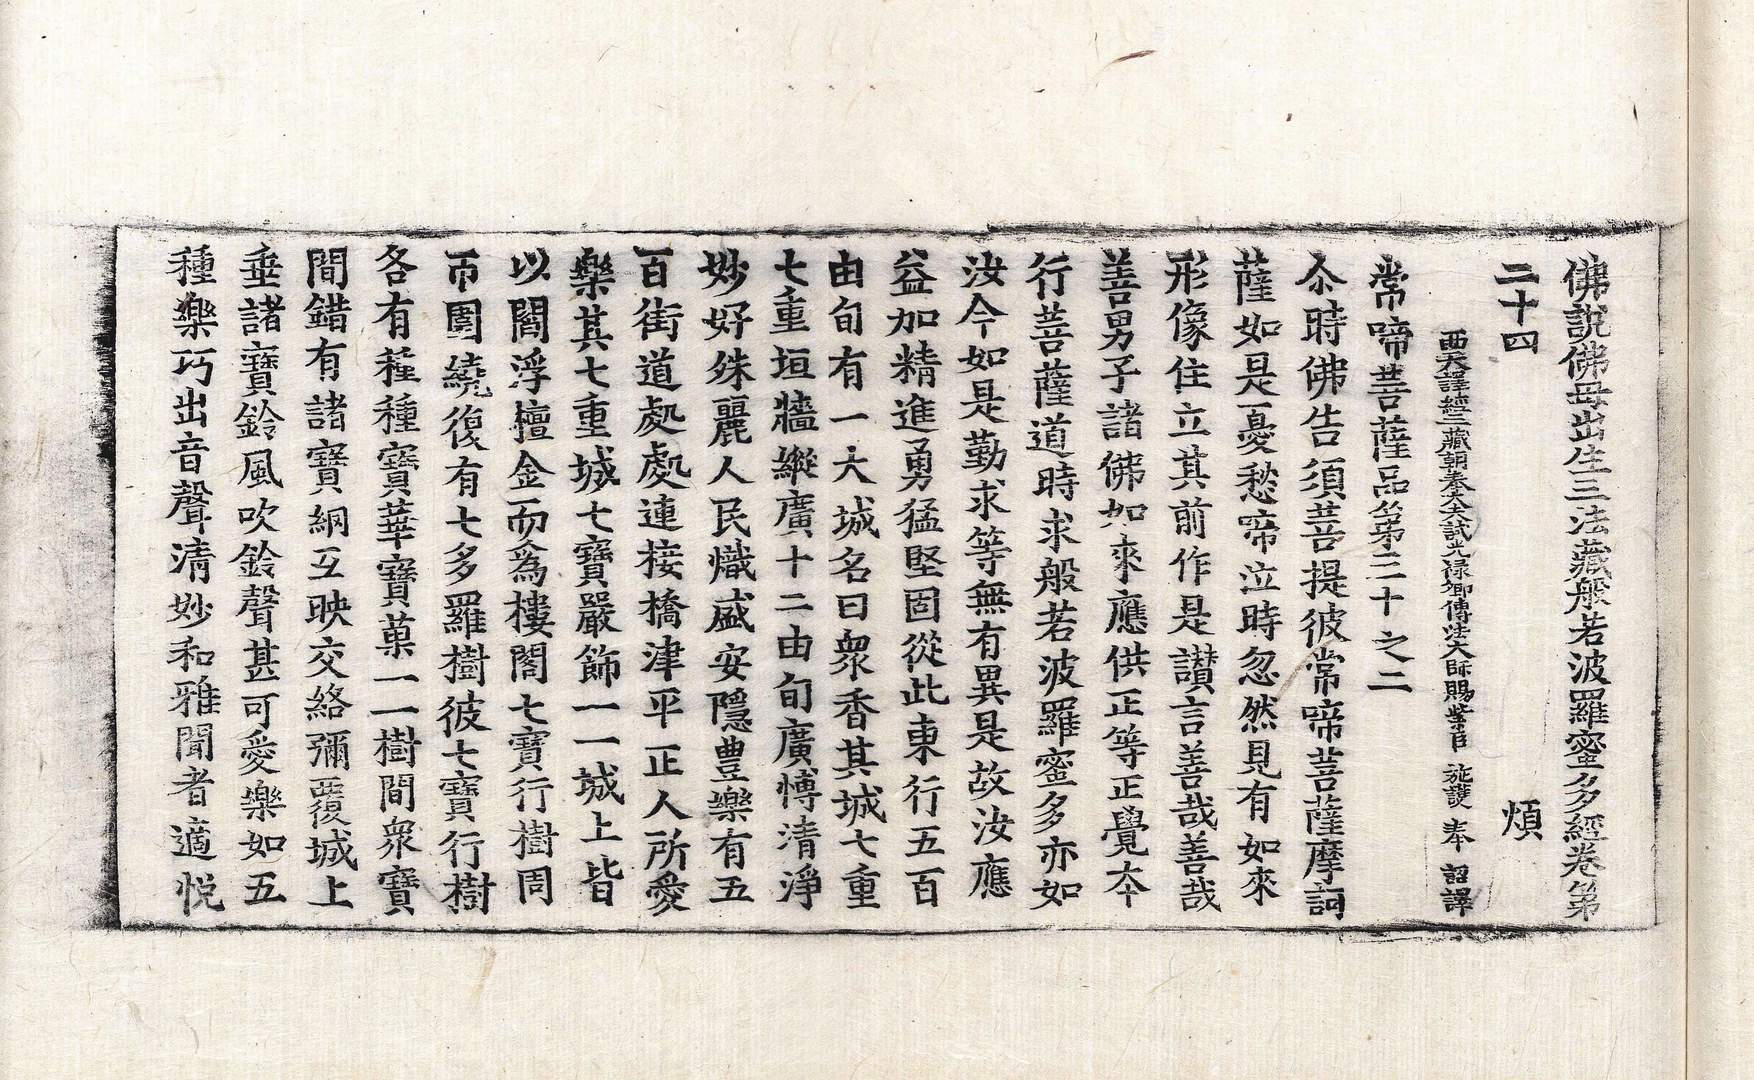 佛說佛母出生三法藏般若波羅蜜多經卷第
二十四　煩
西天譯經三藏朝奉大夫試光祿卿傳法大師賜紫臣施護奉　詔譯
常啼菩薩品第三十之二
尒時佛告須菩提彼常啼菩薩摩訶
薩如是憂愁啼泣時忽然見有如來
形像住立其前作是讃言善哉善哉
善男子諸佛如來應供正等正覺夲
行菩薩道時求般若波羅蜜多亦如
汝今如是勤求等無有異是故汝應
益加精進勇猛堅固從此東行五百
由旬有一大城名曰衆香其城七重
七重垣牆縱廣十二由旬廣愽清淨
妙好殊麗人民熾盛安隱豊樂有五
百街道處處連接橋津平正人所愛
樂其七重城七寶嚴飾一一城上皆
以閻浮檀金而爲樓閣七寶行樹周
帀圍繞復有七多羅樹彼七寶行樹
各有種種寶華寶菓一一樹間衆寶
間錯有諸寶網互映交絡彌覆城上
垂諸寶鈴風吹鈴聲甚可愛樂如五
種樂巧出音聲清妙和雅聞者適悅